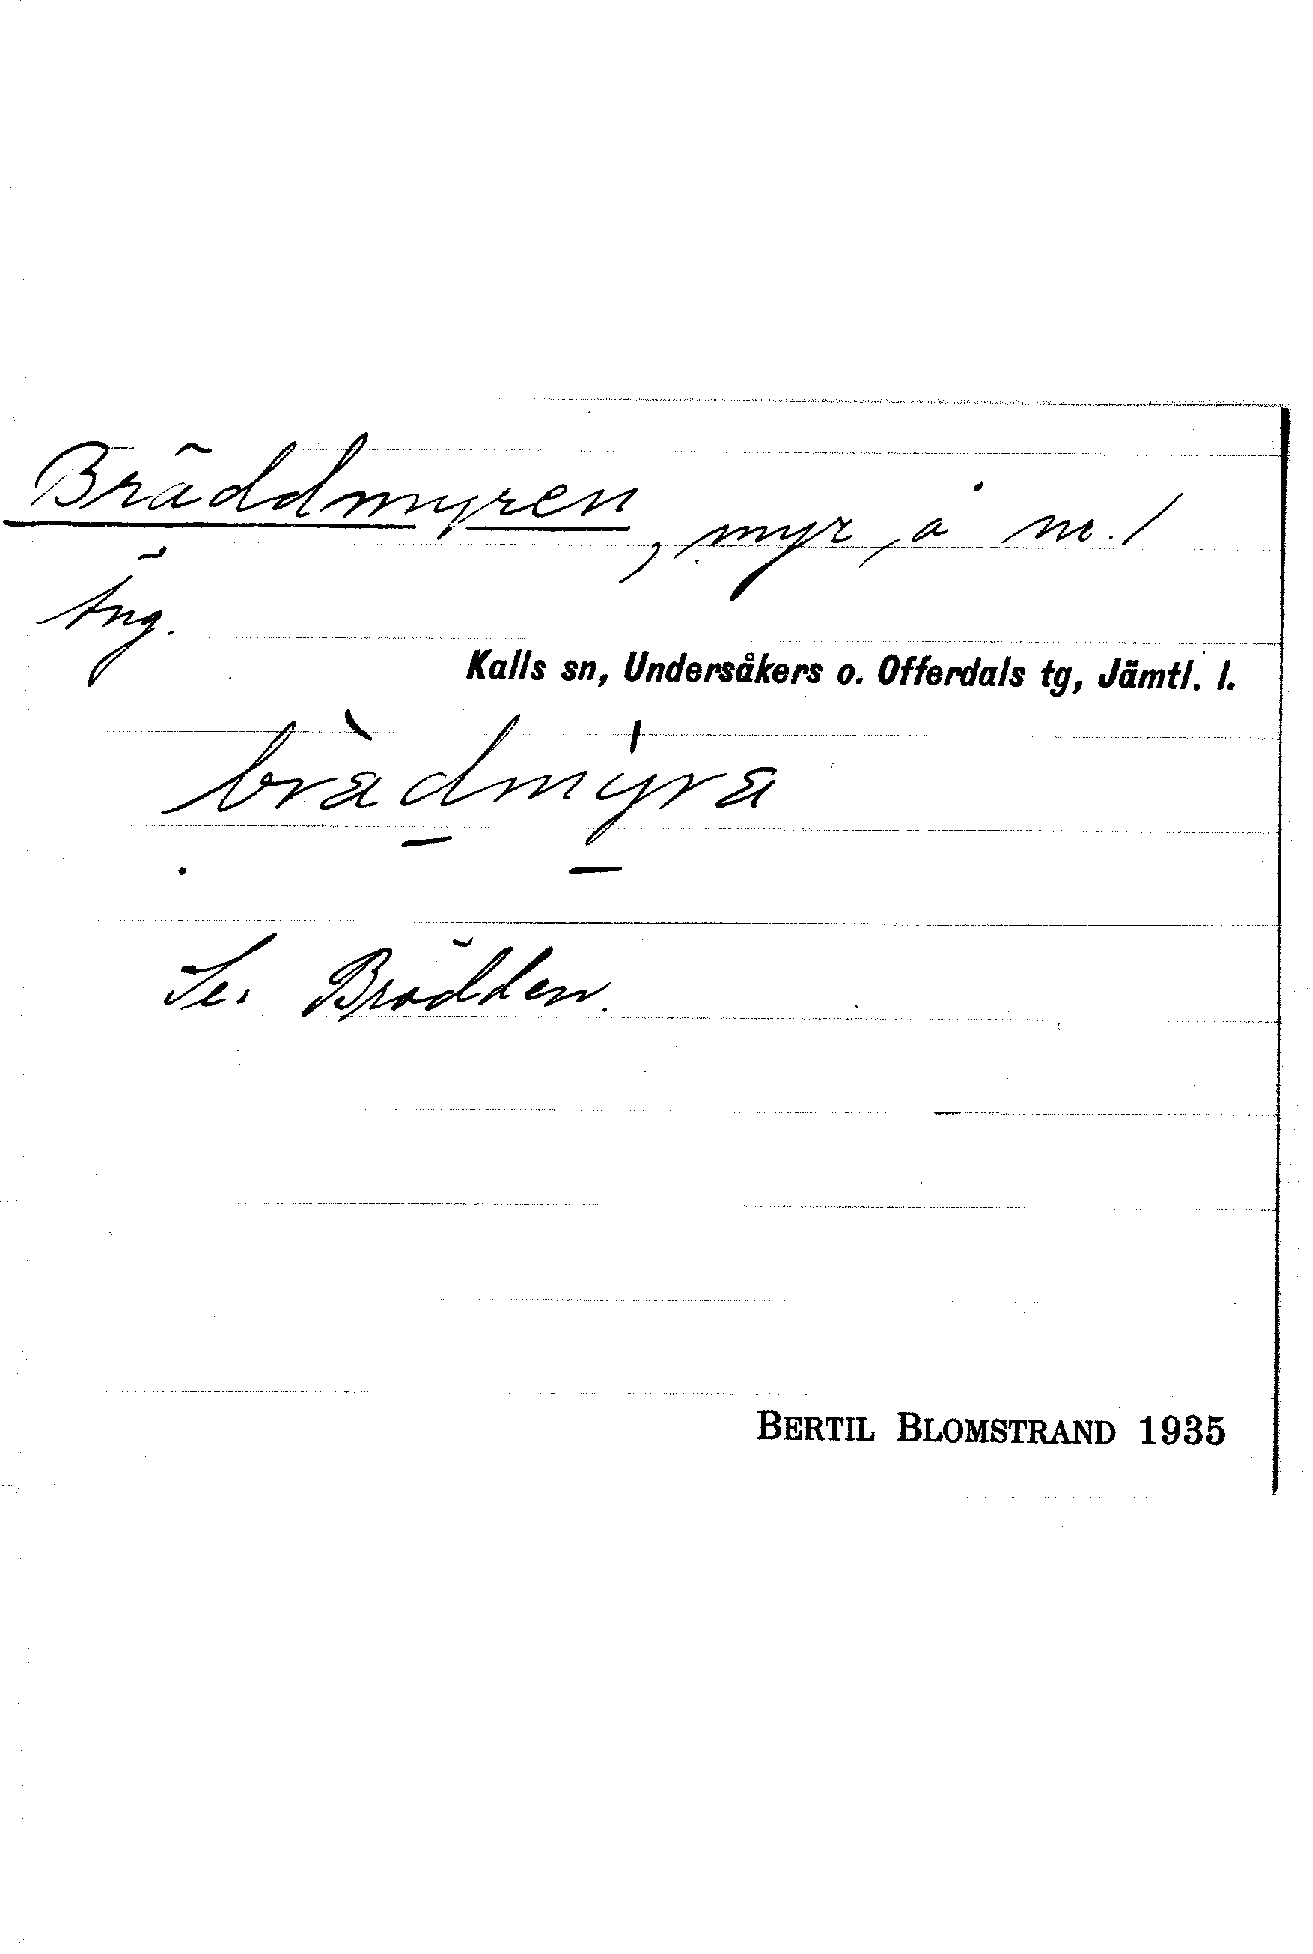 Bräddmyren, myr å nr. 1
Äng.
Kalls sn, Undersåkers o. Offerdals tg, Jämtl. l.
bràdmyra
Se. Brädden.
BERTIL BLOMSTRAND 1935